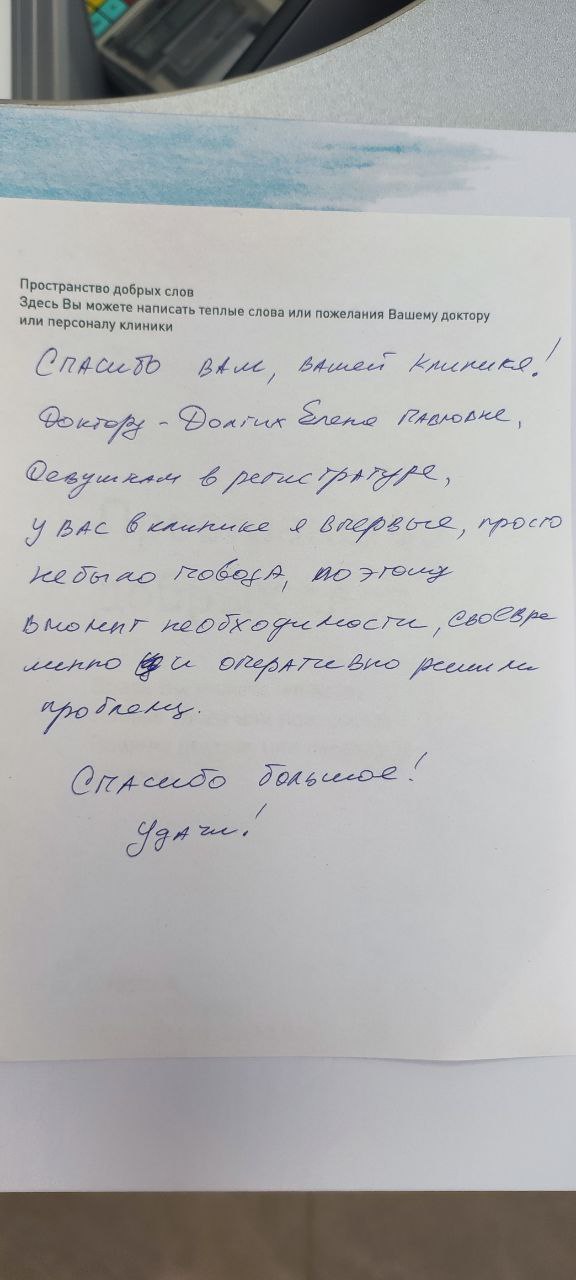 Пространство добрых слов
Здесь Вы можете написать теплые слова или пожелания Вашему доктору
или персоналу клиники
Спасибо вам, вашей клинике!
Доктору - Долгих Елене Павловне,
Девушкам в регистратуре,
у вас в клинике я впервые, просто
не было повода, поэтому
в момент необходимости, своевре
менно и оперативно решили
проблему.
Спасибо большое!
Удачи!